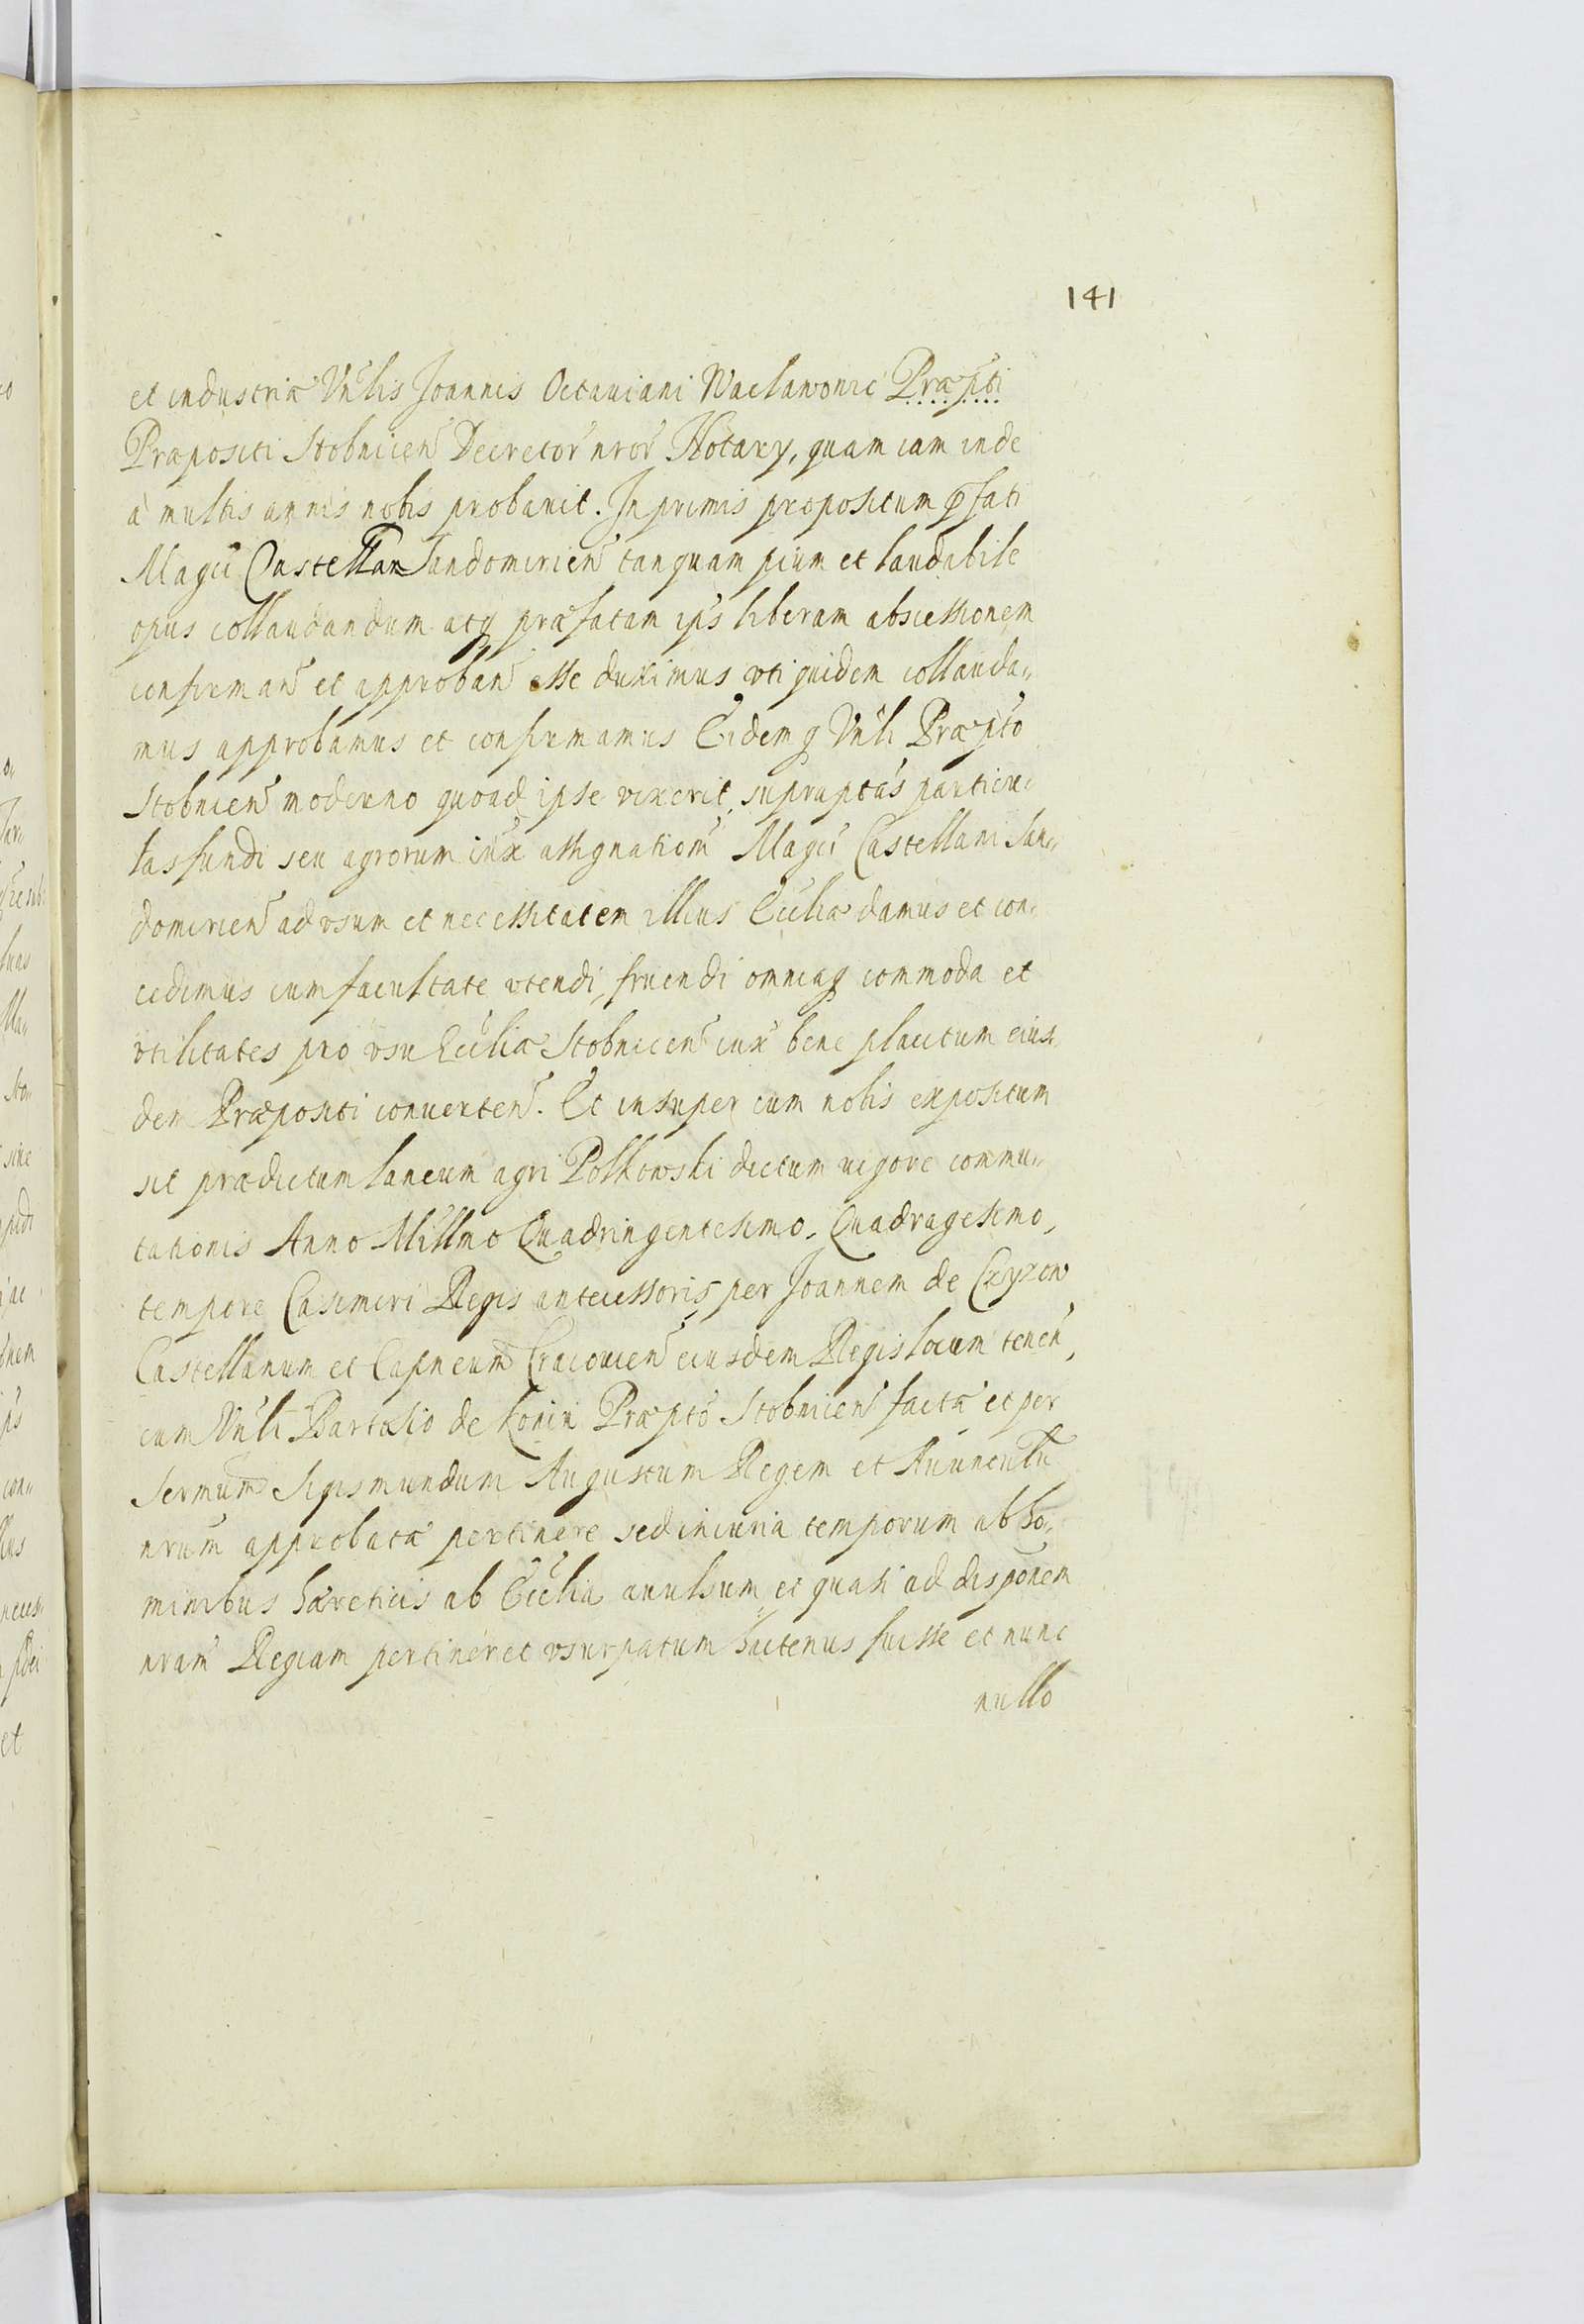 141
et industria Vnlis Joannis Octauiani Waclawowic Præpti
Præpositi Stobnicen Decretor nror Notary, quam iam inde
à multis annis nobis probauit. Inprimis propositum pfati
Magci Castellan Sandomirien tanquam pium et laudabile
opus collaudandum atq præfatam ips liberam abscessionem
confirman et approban esse duximus vti quidem collauda„
mus approbamus et confirmamus Eidemq Vnli Præpto
Stobnicen moderno quoad ipse vixerit, supraptas particu„
las fundi seu agrorum iux assignationi Magci Castellani San„
domirien ad vsum et necessitatem illius Ecclia damus et con„
cedimus cum facultate vtendi, fruendi omniaq commoda et
vtilitates pro vsu Ecclia Stobnicen iux bene placitum eius„
dem Præpositi conuerten. Et insuper cum nobis expositum
sit prædictum laneum agri Polkowski dictum uigore commu„
tationis Anno Millmo Quadringentesimo, Quadragesimo,
tempore Casimiri Regis antecessoris per Joannem de Czyzow
Castellanum et Capneum Cracouien eiusdem Regis locum tenen,
cum Vnli Bartosio de Konin Præpto Stobnicen facta et per
Sermum Sigismundum Augustum Regem et Auunculu
nrum approbata pertinere sed iniuria temporum ab ho„
minibus hæreticis ab Ecclia auulsum et quasi ad disponem
nram Regiam pertineret vsurpatum hactenus fuisse et nunc
nullo